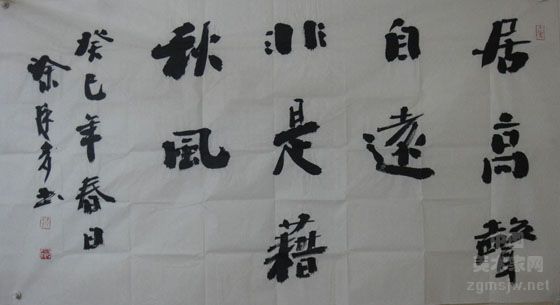 居高聲
自遠
非是藉
秋風
癸巳年春日
徐
书
美术家网
zgmsjw.net